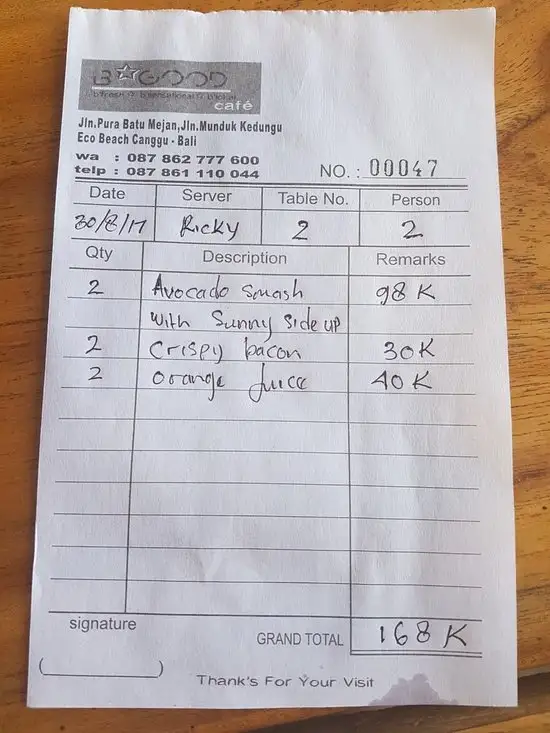 B☆GOOD
café
Jln.Pura Batu Mejan,Jln.Munduk Kedungu
Eco Beach Canggu - Bali
wa : 087 862 777 600
telp : 087 861 110 044
NO. : 00047
Date Server Table No. Person
30/8/17 Ricky 2 2
Qty Description Remarks
2 Avocado smash 98 K
with Sunny side up
2 Crispy bacon 30 K
2 orange juice 40 K
signature
GRAND TOTAL 168 K
Thank's For Your Visit